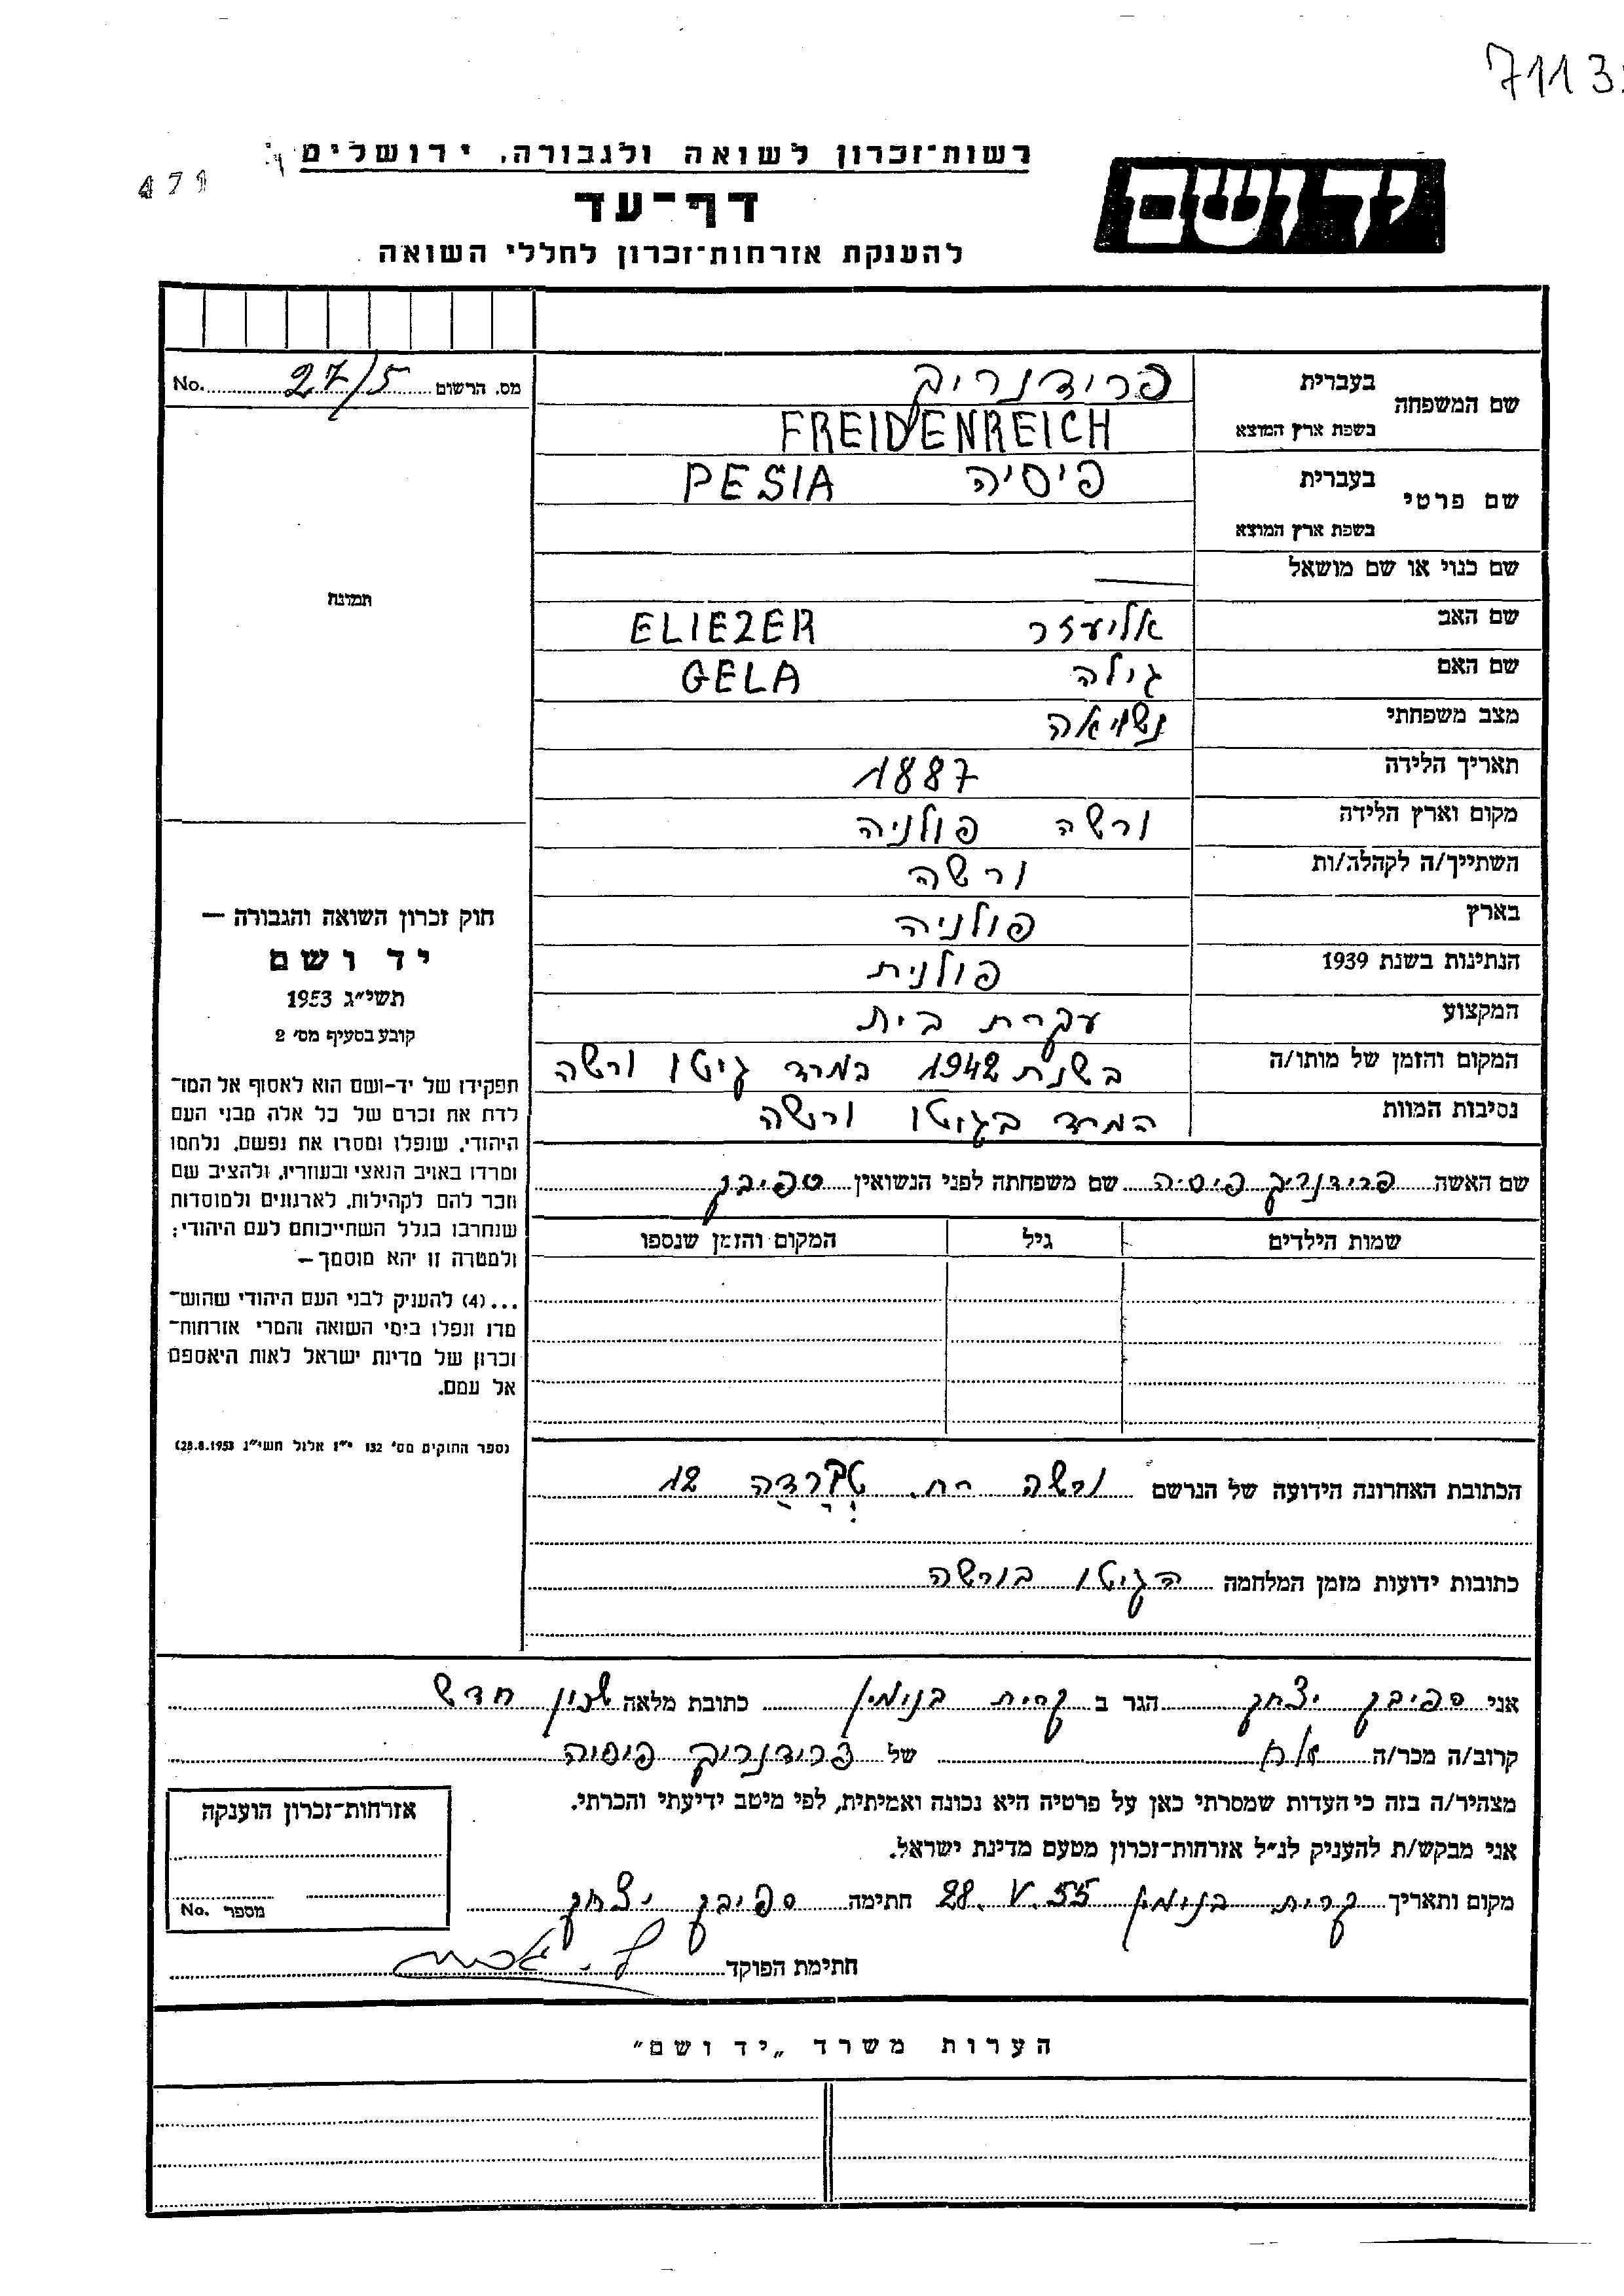 7113
רשות־זכרון לשואה ולגבורה, ירושלים
471
יד ושם
דף־עד
להענקת אזרחות־זכרון לחללי השואה
מס. הרשום 27/5 No.
שם המשפחה בעברית פרידנריך
בשפת ארץ המוצא FREIDENREICH
שם פרטי בעברית פיסיה PESIA
בשפת ארץ המוצא
שם כנוי או שם מושאל —
תמונה
שם האב אליעזר ELIEZER
שם האם גילה GELA
מצב משפחתי נשואה
תאריך הלידה 1887
מקום וארץ הלידה ורשה פולניה
השתייך/ה לקהלה/ות ורשה
בארץ פולניה
הנתינות בשנת 1939 פולנית
המקצוע עקרת בית
המקום והזמן של מותו/ה בשנת 1942 במרד גיטו ורשה
נסיבות המוות המרד בגיטו ורשה
שם האשה פרידנריך פיסיה שם משפחתה לפני הנשואין ספיבק
שמות הילדים גיל המקום והזמן שנספו
חוק זכרון השואה והגבורה —
יד ושם
תשי״ג 1953
קובע בסעיף מס׳ 2
תפקידו של יד-ושם הוא לאסוף אל המו־
לדת את זכרם של כל אלה מבני העם
היהודי, שנפלו ומסרו את נפשם, נלחמו
ומרדו באויב הנאצי ובעוזריו, ולהציב שם
וזכר להם לקהילות, לארגונים ולמוסדות
שנחרבו בגלל השתייכותם לעם היהודי;
ולמטרה זו יהא מוסמך —
...(4) להעניק לבני העם היהודי שהוש־
מדו ונפלו בימי השואה והמרי אזרחות־
זכרון של מדינת ישראל לאות היאספם
אל עמם.
(ספר החוקים מס׳ 132 י״ז אלול תשי״ג 28.8.1953)
הכתובת האחרונה הידועה של הנרשם ורשה רח. טברדה 12
כתובות ידועות מזמן המלחמה הגיטו בורשה
אני ספיבק יצחק הגר ב קרית בנימין כתובת מלאה שכון חדש
קרוב/ה מכר/ה אח של פרידנריך פיסיה
מצהיר/ה בזה כי העדות שמסרתי כאן על פרטיה היא נכונה ואמיתית, לפי מיטב ידיעתי והכרתי.
אני מבקש/ת להעניק לנ״ל אזרחות־זכרון מטעם מדינת ישראל.
מקום ותאריך קרית בנימין 28.V.55 חתימה ספיבק יצחק
חתימת הפוקד
אזרחות־זכרון הוענקה
מספר No.
הערות משרד „יד ושם״